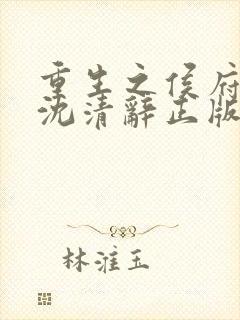 重生之侯府
沈清辞正版
林淮玉